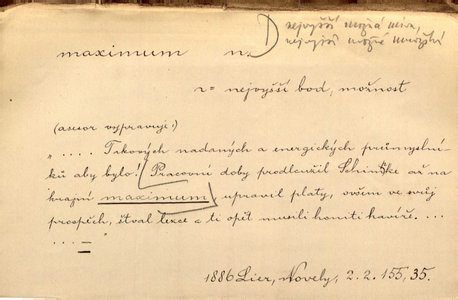 nejvyšší možná míra,
nejvyšší možné množství
maximum n.
n = nejvyšší bod, možnost
(asesor vypravuje:)
„ .... Takových nadaných a energických průmyslní-
ků aby bylo! Pracovní doby prodloužil až na
krajní maximum, upravil platy, ovšem ve svůj
prospěch, štval lezce a ti opět musili honiti havíře. ...
....
1886 Lier, Novely, 2. 2. 155, 35.